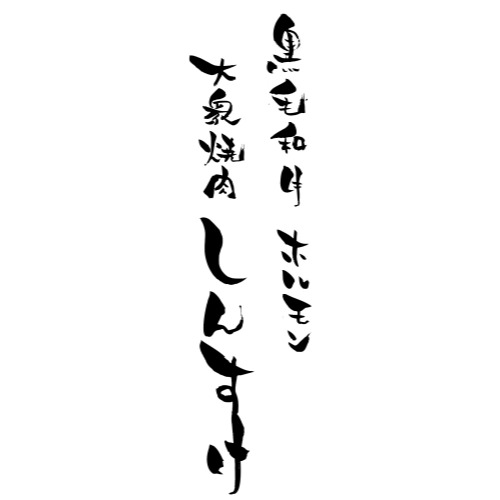 黒毛和牛 ホルモン
大泉焼肉 しんすけ